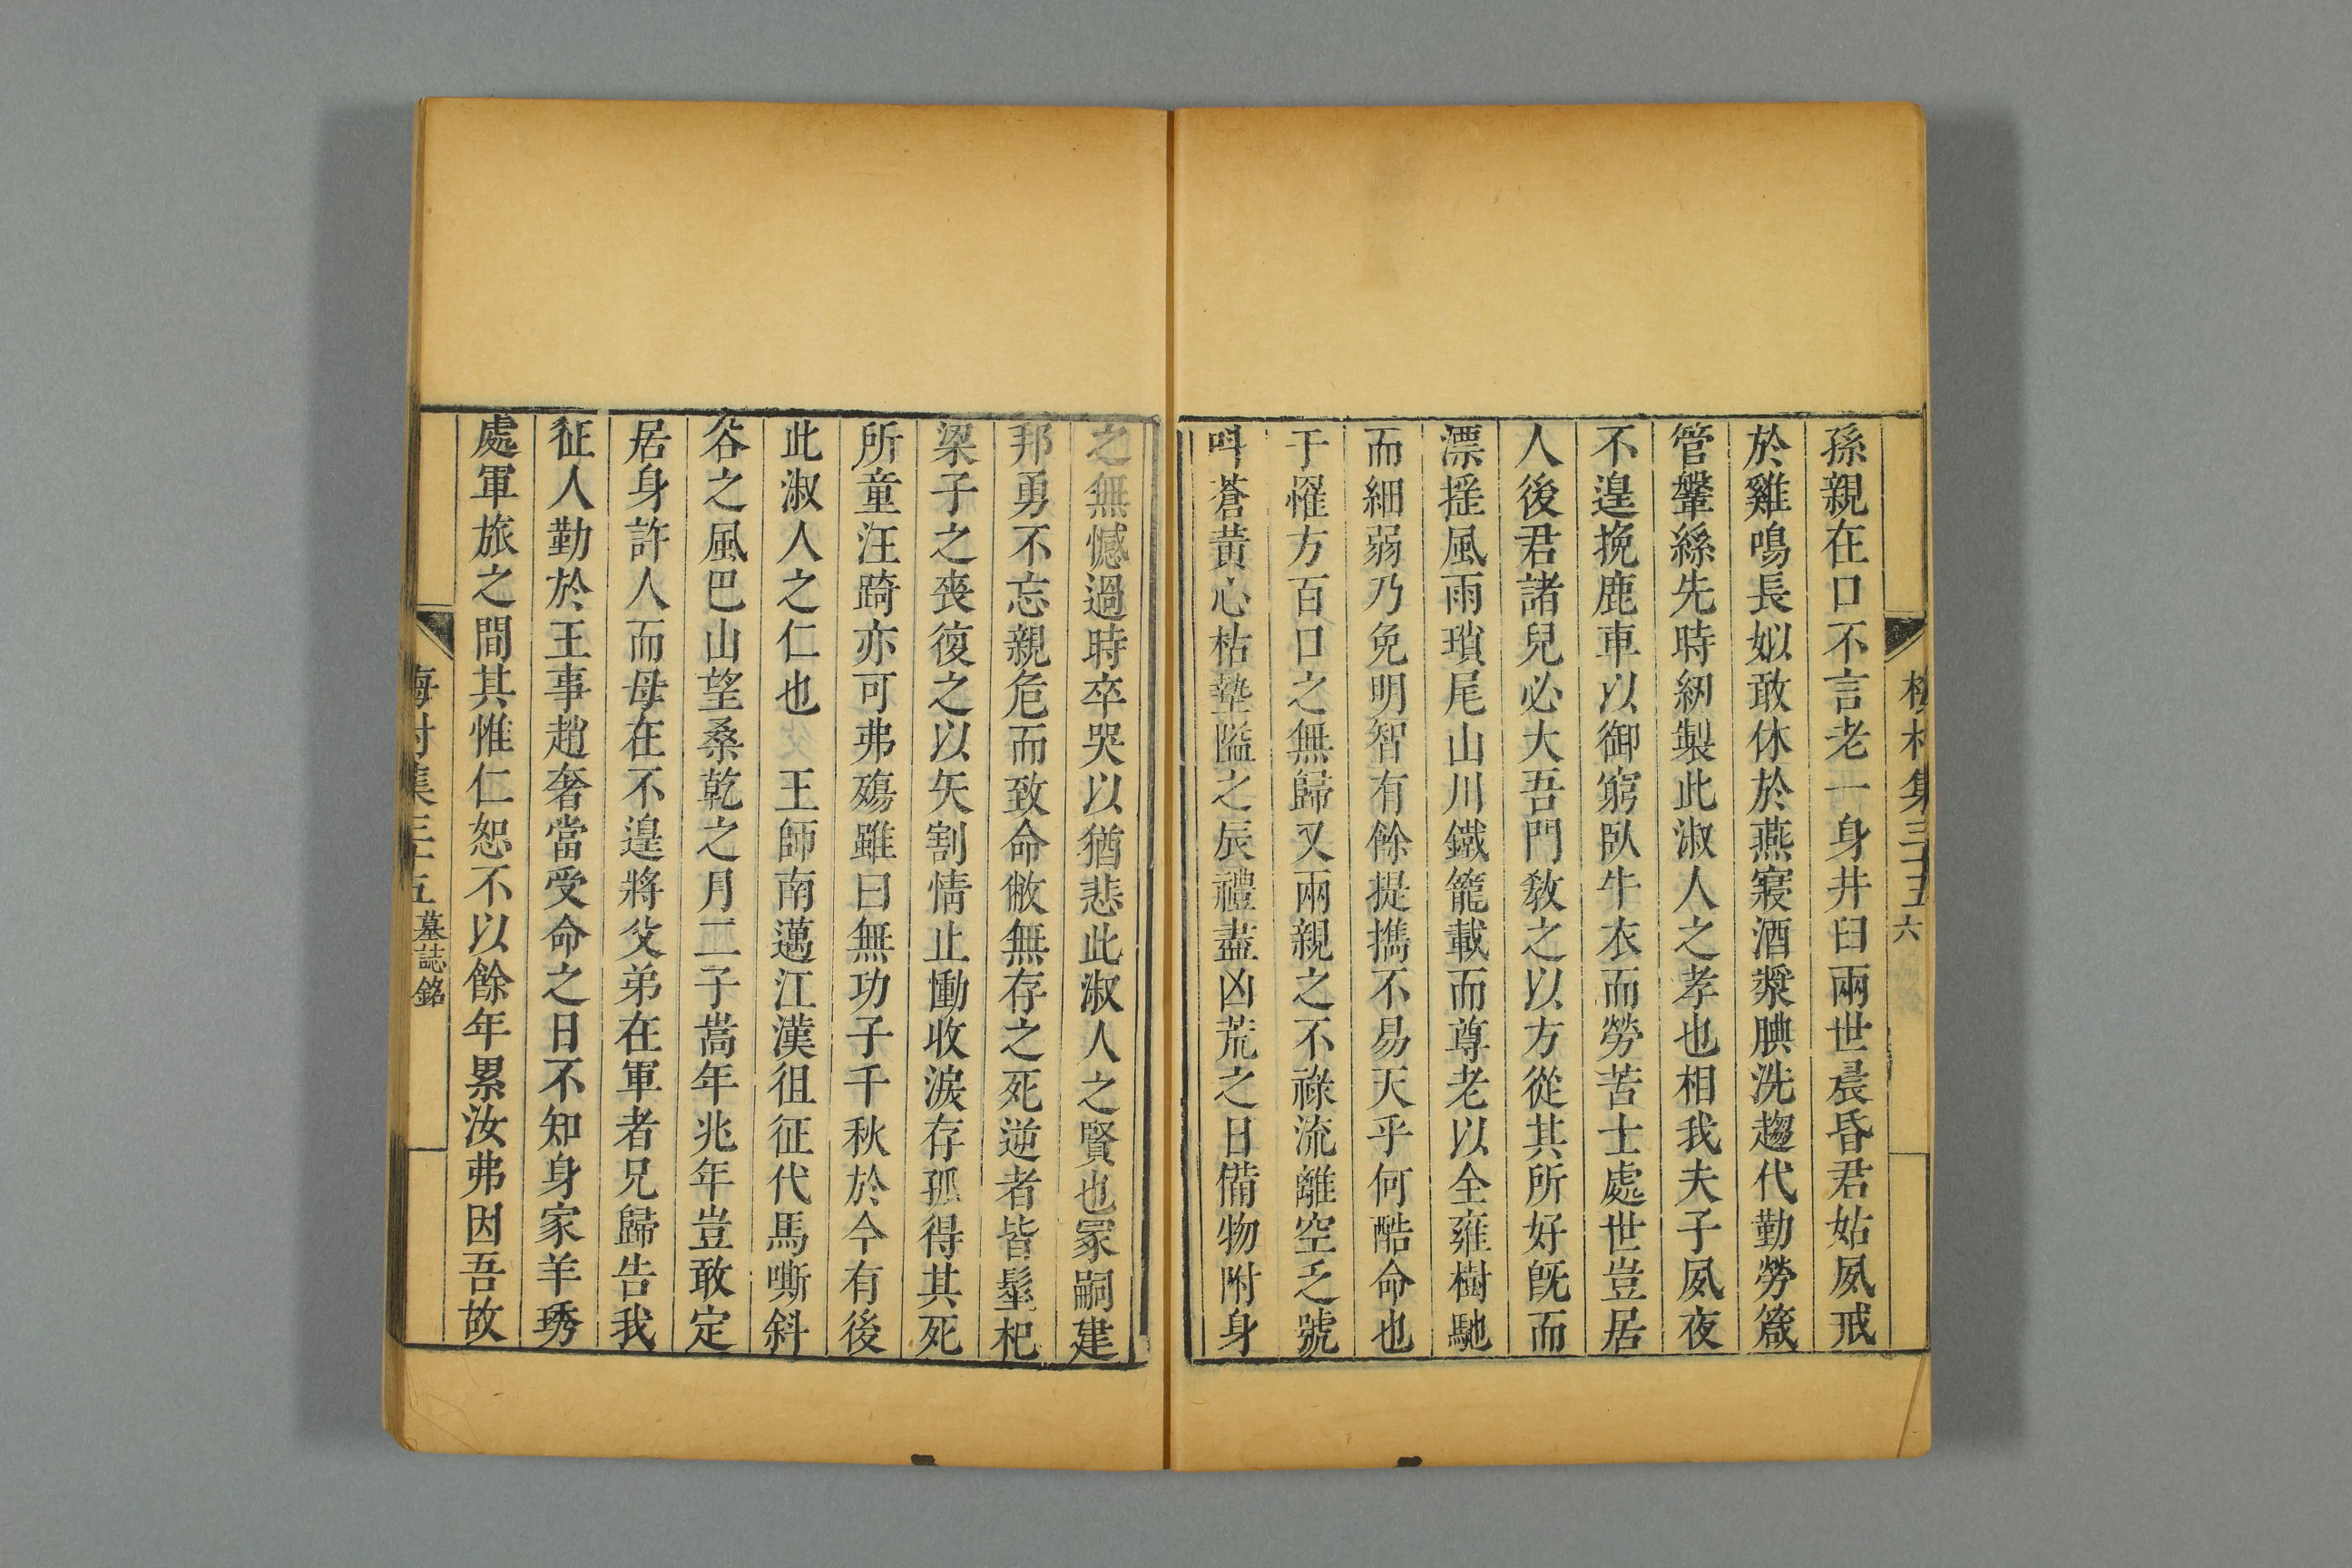 梅村集三十五 六
孫親在口不言老一身井臼兩世晨昏君姑夙戒
於雞鳴長姒敢休於燕寢酒漿腆洗趨代勤勞箴
管鞶絲先時紉製此淑人之孝也相我夫子夙夜
不遑挽鹿車以御窮臥牛衣而勞苦士處世豈居
人後君諸兒必大吾門敎之以方從其所好旣而
漂搖風雨瑣尾山川鐵籠載而尊老以全雍樹馳
而細弱乃免明智有餘提攜不易天乎何酷命也
于罹方百口之無歸又兩親之不祿流離空乏號
呌蒼黃心枯墊隘之辰禮盡凶荒之日備物附身
之無憾過時卒哭以猶悲此淑人之賢也冢嗣建
邦勇不忘親危而致命敝無存之死逆者皆髽杞
梁子之喪復之以矢割情止慟收淚存孤得其死
所童汪踦亦可弗殤雖曰無功子千秋於今有後
此淑人之仁也 王師南邁江漢徂征代馬嘶斜
谷之風巴山望桑乾之月二子嵩年兆年豈敢定
居身許人而母在不遑將父弟在軍者兄歸告我
征人勤於王事趙奢當受命之日不知身家羊琇
處軍旅之間其惟仁恕不以餘年累汝弗因吾故
梅村集三十五 墓誌銘